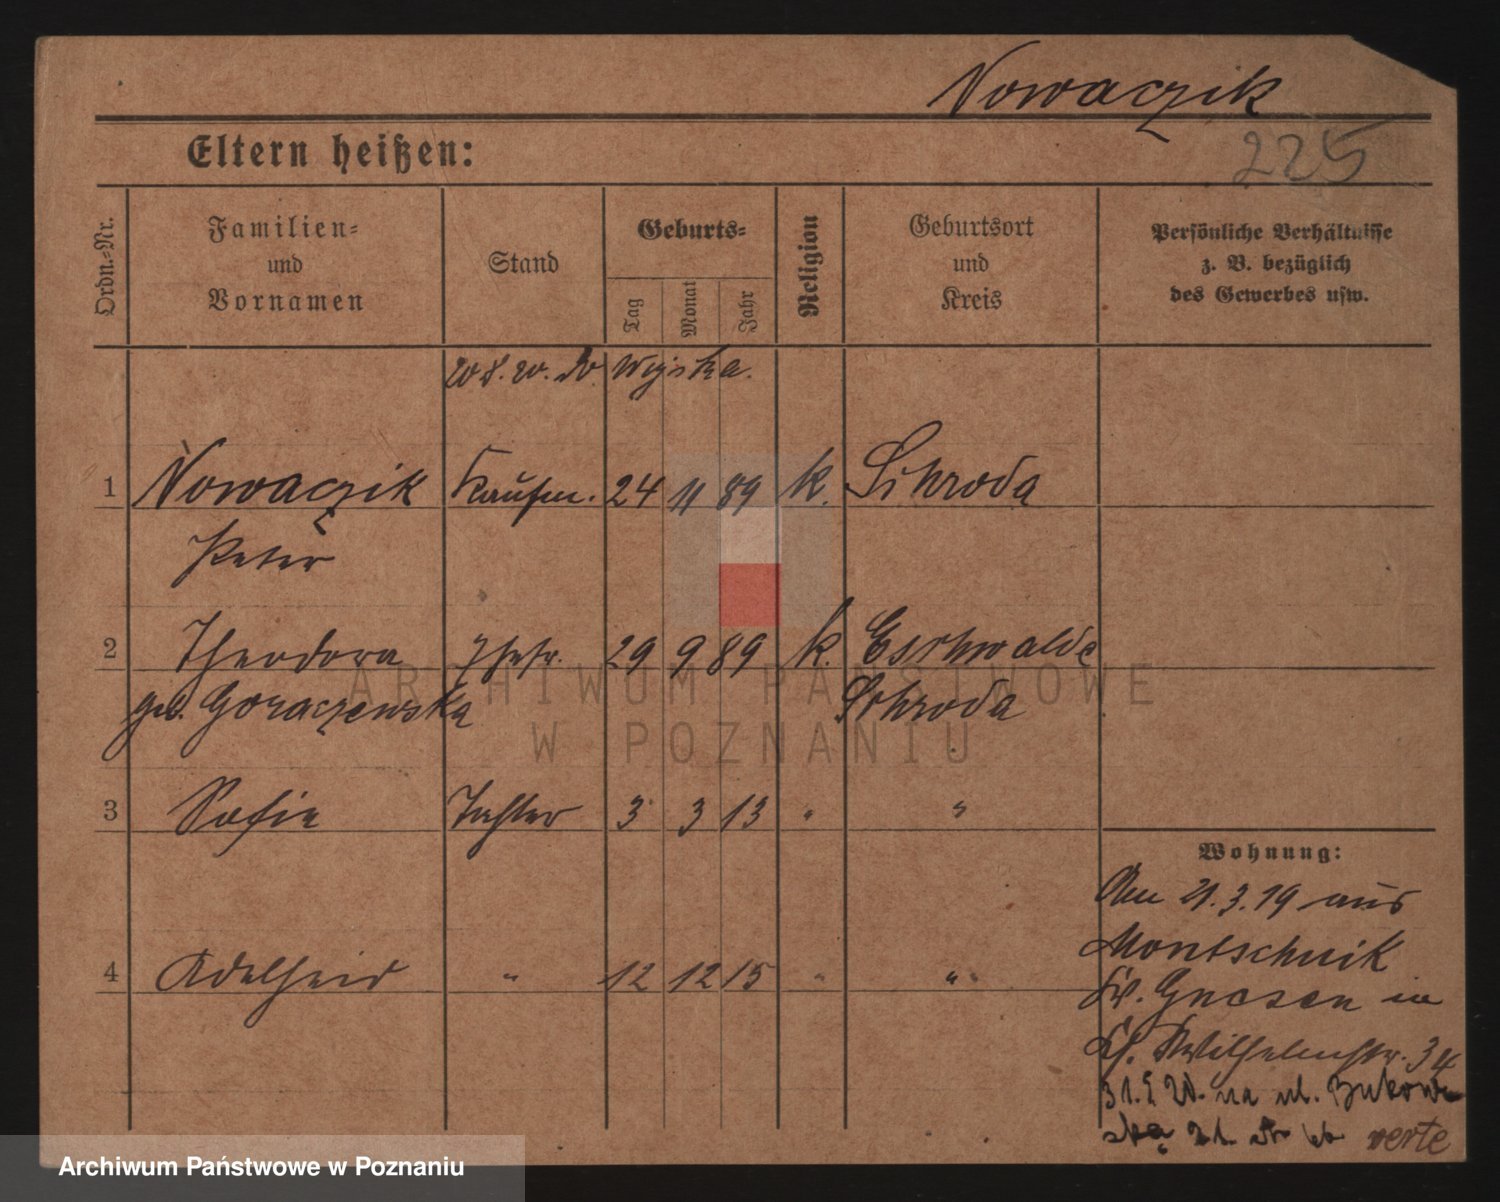 Nowaczik
225
Eltern heißen:
Ordn.-Nr.
Familien-
und
Vornamen
Stand
Geburts-
Tag
Monat
Jahr
Religion
Geburtsort
und
Kreis
Persönliche Verhältnisse
z. B. bezüglich
des Gewerbes usw.
Wojska.
1 Nowaczik Kaufm. 24 11 89 k. Schroda
Peter
2 Theodora Ehefr. 29 9 89 k. Eschwalde
geb. Goraczewska Schroda
3 Sofie Tochter 3 3 13 " "
Wohnung:
Am 21.3.19 aus
Montschnik
4 Adelheid " 12 12 15 " "
Kr. Gnesen in
Wilhelmstr. 34
na ul. Bukow-
ską 21 verte
ARCHIWUM PAŃSTWOWE
W POZNANIU
Archiwum Państwowe w Poznaniu